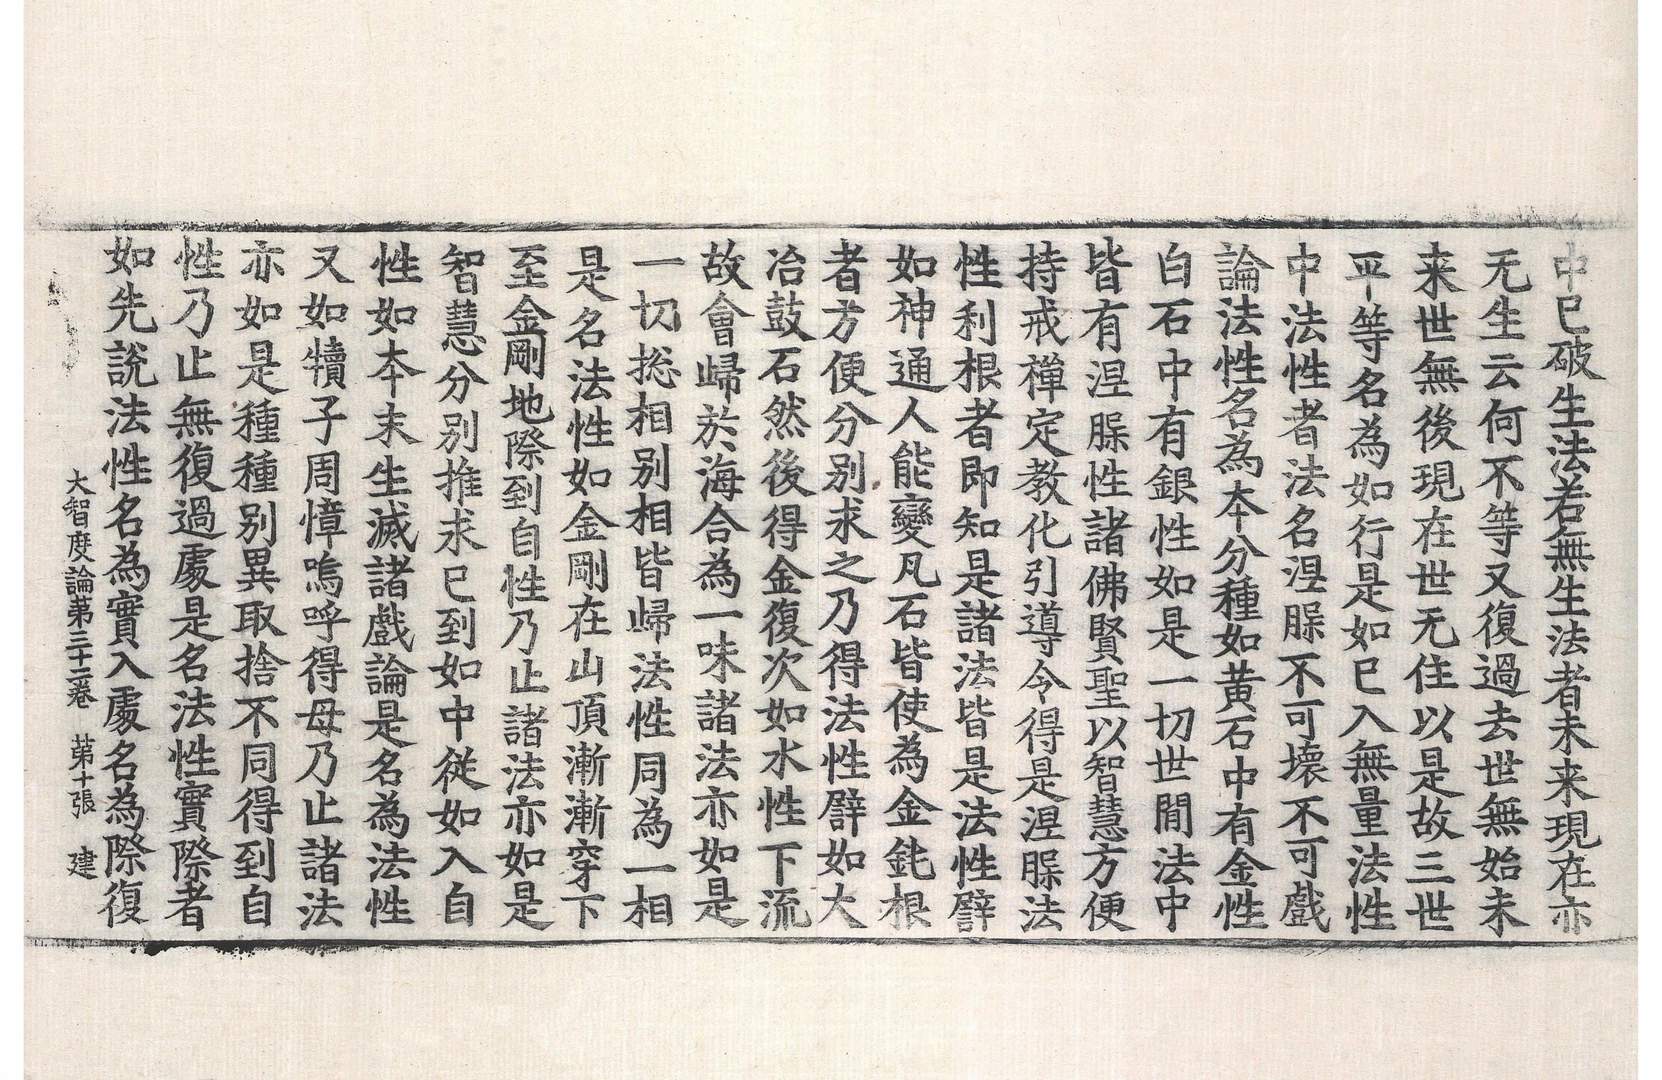 中已破生法若無生法者未来現在亦
无生云何不等又復過去世無始未
来世無後現在世无住以是故三世
平等名為如行是如已入無量法性
中法性者法名涅槃不可壞不可戲
論法性名為本分種如黄石中有金性
白石中有銀性如是一切世間法中
皆有涅槃性諸佛賢聖以智慧方便
持戒禪定教化引導令得是涅槃法
性利根者即知是諸法皆是法性譬
如神通人能變凡石皆使為金鈍根
者方便分別求之乃得法性譬如大
冶鼓石然後得金復次如水性下流
故會歸於海合為一味諸法亦如是
一切捴相別相皆歸法性同為一相
是名法性如金剛在山頂漸漸穿下
至金剛地際到自性乃止諸法亦如是
智慧分別推求已到如中従如入自
性如本末生滅諸戲論是名為法性
又如犢子周慞嗚呼得母乃止諸法
亦如是種種別異取捨不同得到自
性乃止無復過處是名法性實際者
如先說法性名為實入處名為際復
大智度論第三十二卷 第十張 建